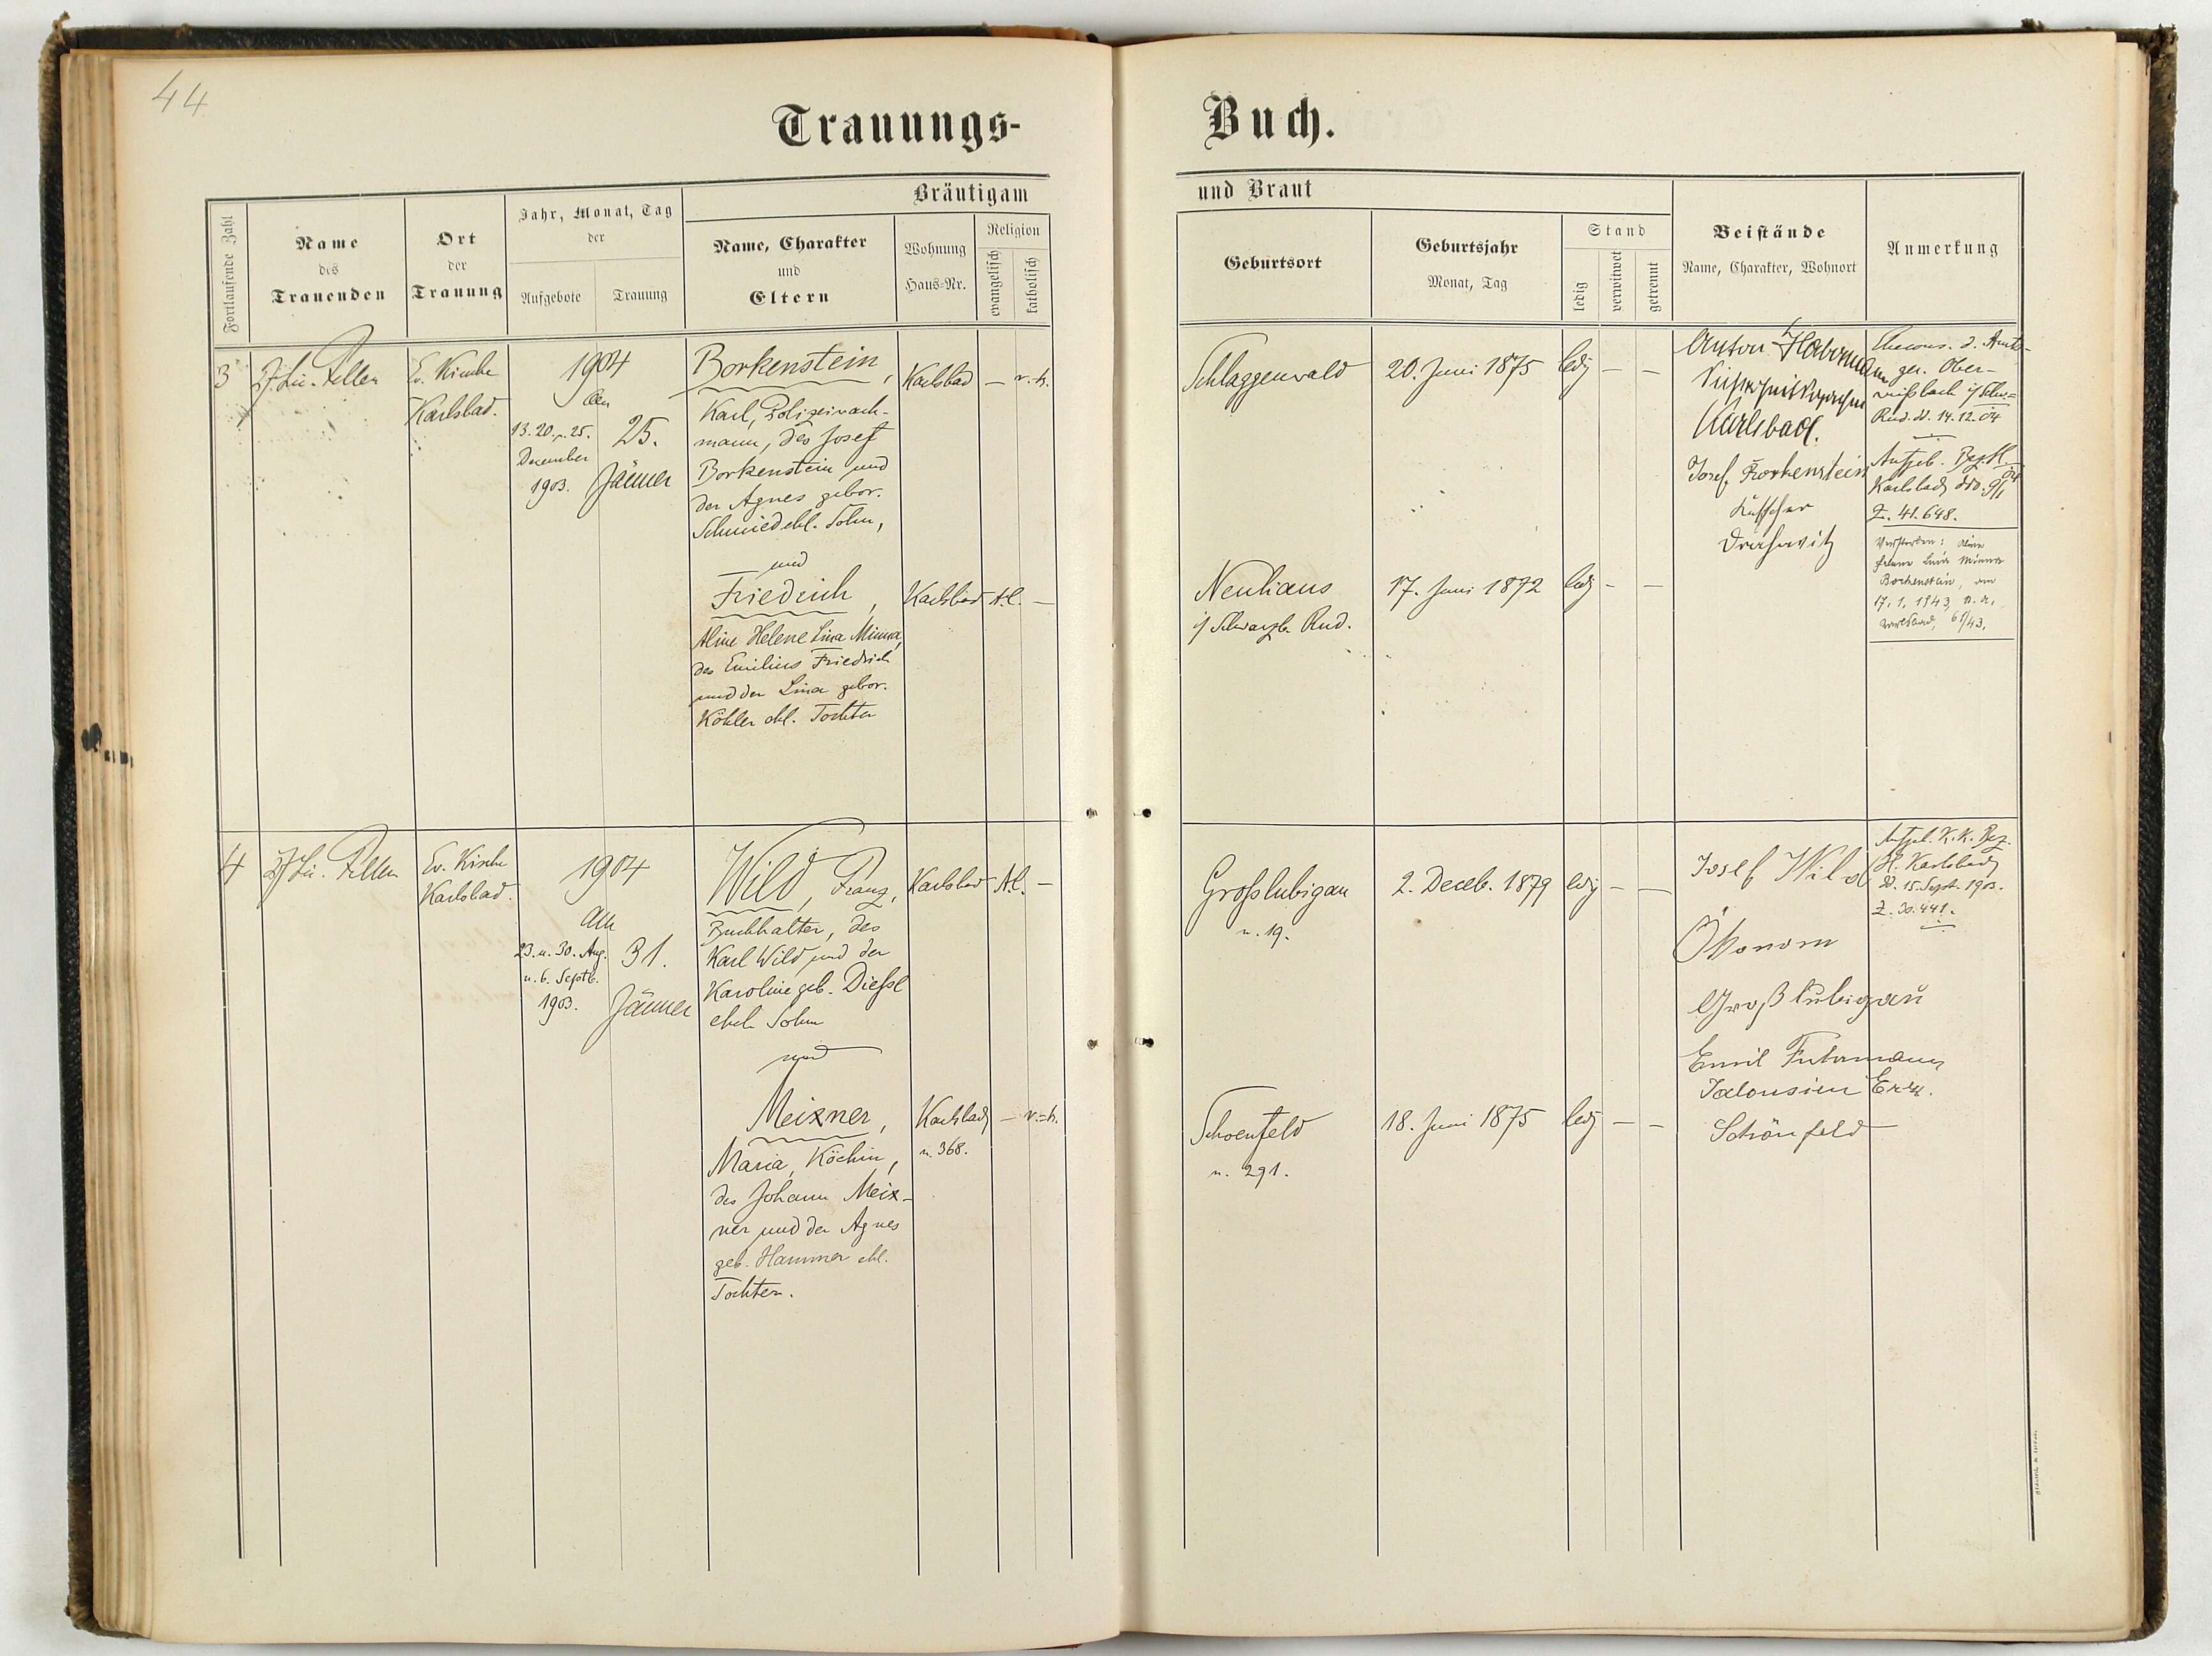 44
Trauungs-
Buch.
Bräutigam
und Braut
Fortlaufende Zahl
Name
des
Trauenden
Ort
der
Trauung
Jahr, Monat, Tag
der
Aufgebote
Trauung
Name, Charakter
und
Eltern
Wohnung
Haus-Nr.
Religion
evangelisch
katholisch
Geburtsort
Geburtsjahr
Monat, Tag
Stand
ledig
verwitwet
getrennt
Beistände
Name, Charakter, Wohnort
Anmerkung
3
Ev. Kirche
Karlsbad.
1904
den
13. 20. u. 25.
December
1903.
25.
Jänner
Borkenstein,
Karl, Polizeiwach-
mann, des Josef
Borkenstein und
der Agnes gebor.
Schmied ehl. Sohn,
und
Friedrich,
Aline Helene Lina Minna,
des Emilius Friedrich
und der Lina gebor.
Köhler ehl. Tochter
Karlsbad
–
r.-k.
Karlsbad
A.C.
–
Schlaggenwald
20. Juni 1875
ledig
–
–
Neuhaus
i/ Schwarzb. Rud.
17. Juni 1872
ledig
–
–
Anton
Karlsbad.
Josef Borkenstein
Kutscher
d. Amts-
ger. Ober-
weißbach i/ Schw.=
Rud. d. 14.12.04
Aufgeb. Bez. H.
Karlsbad ddo.
Z. 41.648.
Verstorben: Aline
Helene Lina Minna
Borkenstein, am
17.1.1943, St. A.
Karlsbad, 61/43.
4
Ev. Kirche
Karlsbad.
1904
am
23. u. 30. Aug.
u. 6. Septb.
1903.
31.
Jänner
Wild, Franz,
Buchhalter, des
Karl Wild und der
Karoline geb. Dießl
ehel. Sohn
und
Meixner,
Maria, Köchin,
des Johann Meix-
ner und der Agnes
geb. Hammer ehl.
Tochter.
Karlsbad
A.C.
–
Karlsbad
n. 368.
–
r.=k.
Großlubigau
n. 19.
2. Deceb. 1879
ledig
–
–
Schoenfeld
n. 291.
18. Juni 1875
ledig
–
–
Josef Wild
Ökonom
Groß lubigau
Emil Fuhrmann
Jalousien Erz.
Schönfeld
Aufgeb. K. K. Bez.
H. Karlsbad
d. 15. Sept. 1903.
Z. 30.441.